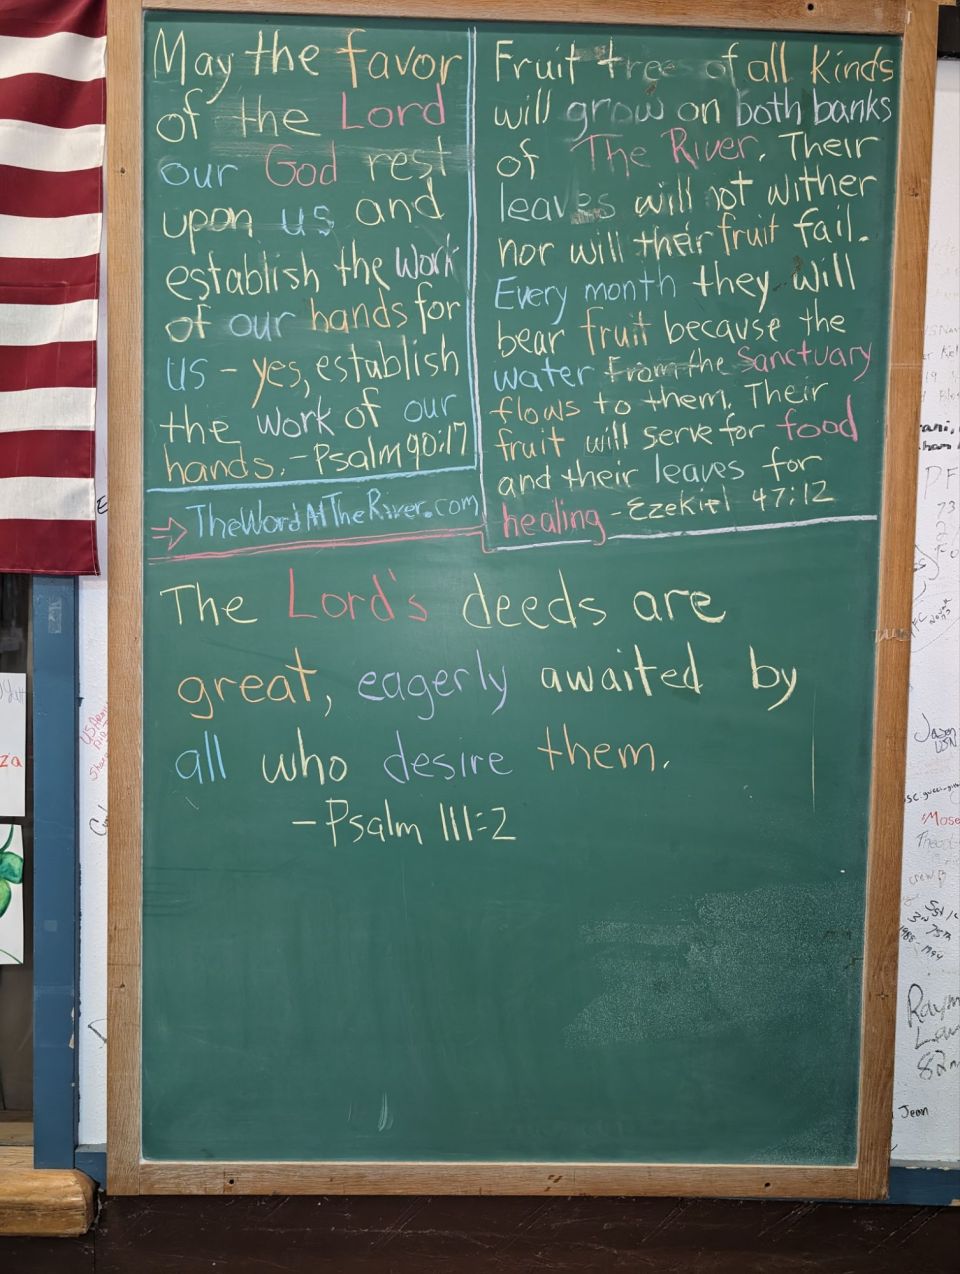 May the favor
of the Lord
our God rest
upon us and
establish the work
of our hands for
us - yes, establish
the work of our
hands. - Psalm 90:17
TheWordAtTheRiver.com
Fruit tree of all kinds
will grow on both banks
of The River. Their
leaves will not wither
nor will their fruit fail.
Every month they will
bear fruit because the
water from the Sanctuary
flows to them. Their
fruit will serve for food
and their leaves for
healing - Ezekiel 47:12
The Lord's deeds are
great, eagerly awaited by
all who desire them.
- Psalm 111:2
Jason
USN
Mose
Raym
82
Jean